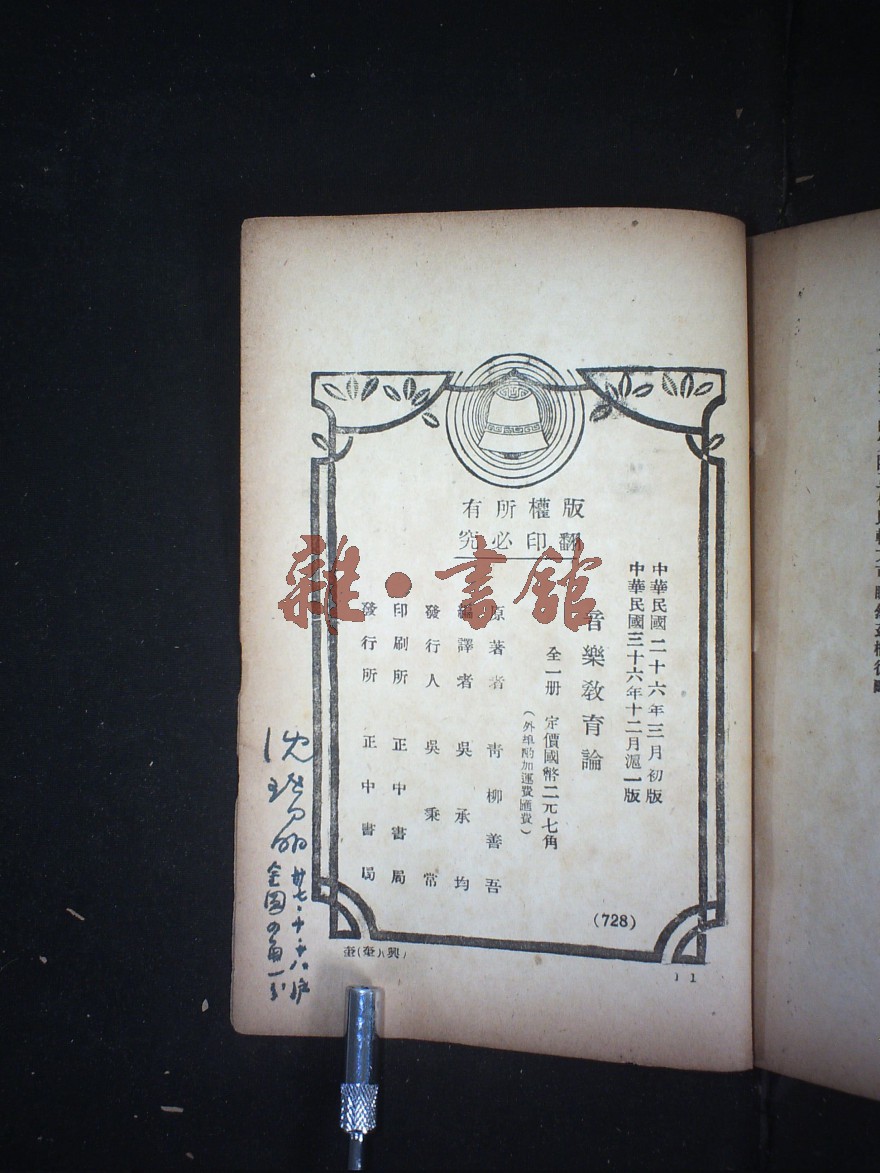 版權所有
翻印必究
中華民國二十六年三月初版
中華民國三十六年十二月滬一版
音樂敎育論
全一册 定價國幣二元七角
(外埠酌加運費匯費)
原著者 靑柳善吾
編譯者 吳承均
發行人 吳秉常
印刷所 正中書局
發行所 正中書局
(728)
1
雜·書舘
卅七.十.十八滬